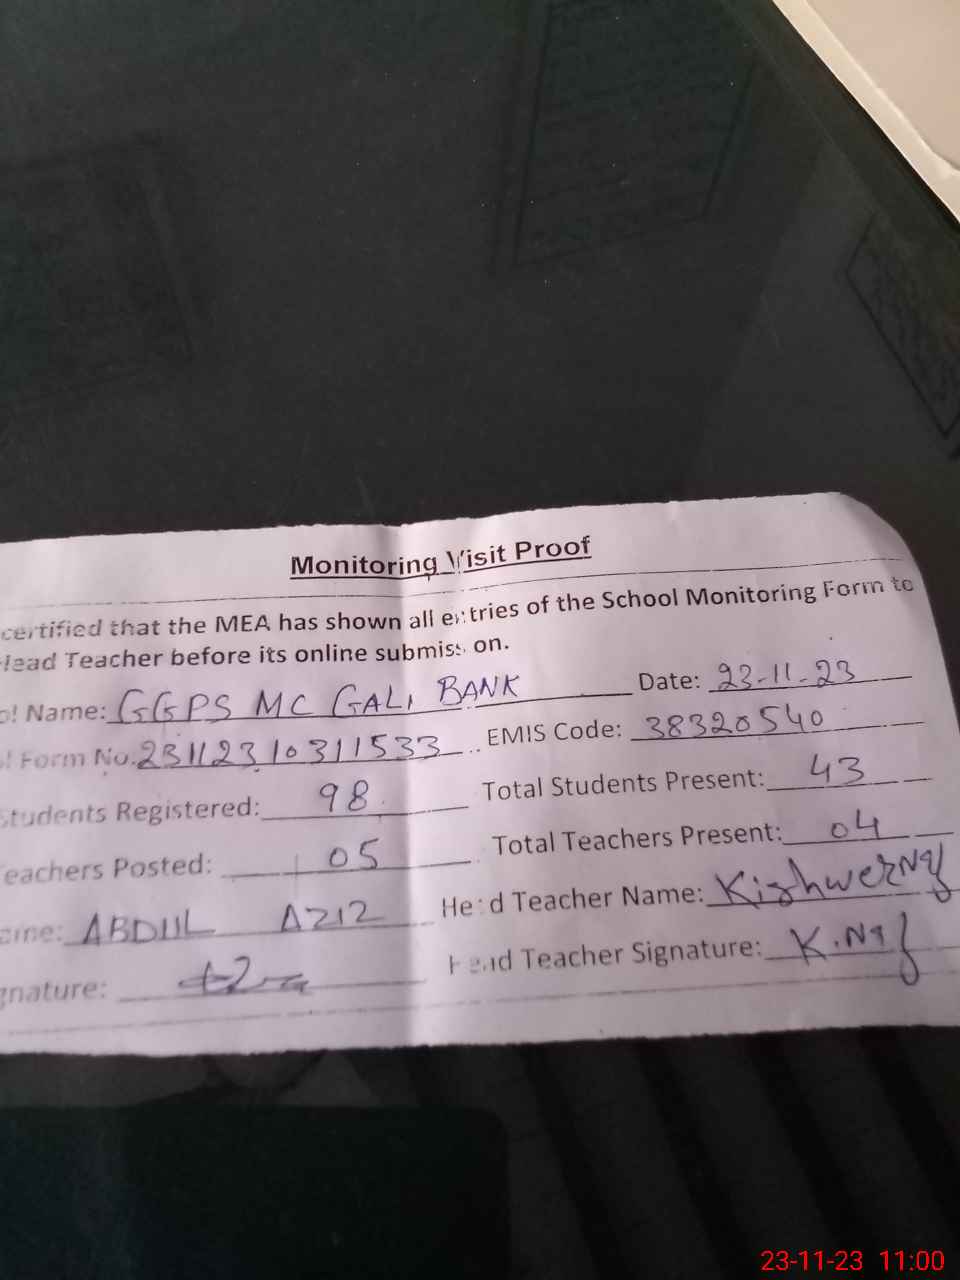 Monitoring Visit Proof
certified that the MEA has shown all entries of the School Monitoring Form to
Head Teacher before its online submission.
ol Name: GGPS MC GALI BANK Date: 23-11-23
Form No. 23112310311533 EMIS Code: 38320540
Students Registered: 98 Total Students Present: 43
Teachers Posted: 05 Total Teachers Present: 04
ame: ABDUL AZIZ Head Teacher Name: Kishwer
gnature: Head Teacher Signature:
23-11-23 11:00